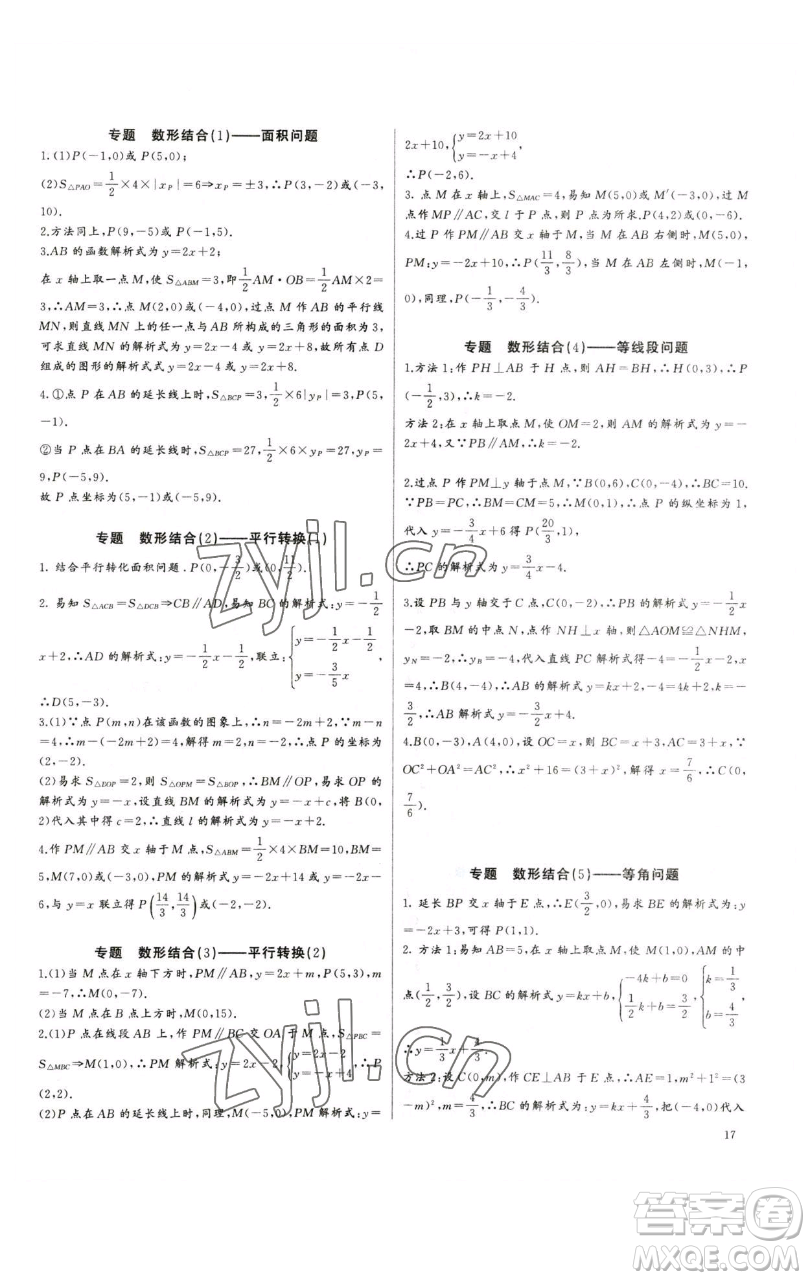 专题 数形结合(1)——面积问题
1.(1)P(-1,0)或 P(5,0);
(2)S△PAO=1/2×4×|xP|=6⇒xP=±3,∴P(3,-2)或(-3,
10).
2.方法同上,P(9,-5)或 P(-1,5).
3.AB 的函数解析式为 y=2x+2;
在 x 轴上取一点 M,使 S△ABM=3,即1/2AM·OB=1/2AM×2=
3,∴AM=3,∴点 M(2,0)或(-4,0),过点 M 作 AB 的平行线
MN,则直线 MN 上的任一点与 AB 所构成的三角形的面积为 3,
可求直线 MN 的解析式为 y=2x-4 或 y=2x+8,故所有点 D
组成的图形的解析式为 y=2x-4 或 y=2x+8.
4.①点 P 在 AB 的延长线上时,S△BCP=3,1/2×6|yP|=3,P(5,
-1).
②当 P 点在 BA 的延长线上时,S△BCP=27,1/2×6×yP=27,yP=
9,P(-5,9).
故 P 点坐标为(5,-1)或(-5,9).
专题 数形结合(2)——平行转换(1)
1. 结合平行转化面积问题.P(0,-3/2)或(0,11/2).
2. 易知 S△ACB=S△DCB⇒CB∥AD,易知 BC 的解析式:y=-1/2
x+2,∴AD 的解析式:y=-1/2x-1/2,联立:{y=-1/2x-1/2 y=-3/5x
∴D(5,-3).
3.(1)∵点 P(m,n)在该函数的图象上,∴n=-2m+2,∵m-n
=4,∴m-(-2m+2)=4,解得 m=2,n=-2,∴点 P 的坐标为
(2,-2).
(2)易求 S△BOP=2,则 S△OPM=S△BOP,∴BM∥OP,易求 OP 的
解析式为 y=-x,设直线 BM 的解析式为 y=-x+c,将 B(0,
2)代入其中得 c=2,∴直线 l 的解析式为 y=-x+2.
4.作 PM∥AB 交 x 轴于 M 点,S△ABM=1/2×4×BM=10,BM=
5,M(7,0)或(-3,0),∴PM 解析式为 y=-2x+14 或 y=-2x-
6,与 y=x 联立得 P(14/3,14/3)或(-2,-2).
专题 数形结合(3)——平行转换(2)
1.(1)当 M 点在 x 轴下方时,PM∥AB,y=-2x+13,P(5,3),m
=-7,∴M(0,-7).
(2)当 M 点在 B 点上方时,M(0,15).
2.(1)P 点在线段 AB 上,作 PM∥BC 交 OA 于 M 点,S△PBC=
S△MBC⇒M(1,0),∴PM 解析式:y=2x-2,{y=2x-2 ,∴P
(2,2).
(2)P 点在 AB 的延长线上时,同理,M(-5,0),PM 解析式:y=
2x+10,{y=2x+10 y=-x+4,
∴P(-2,6).
3. 点 M 在 x 轴上,S△MAC=4,易知 M(5,0)或 M′(-3,0),过 M
点作 MP∥AC,交 l 于 P 点,则 P 点为所求,P(4,2)或(0,-6).
4.过 P 作 PM∥AB 交 x 轴于 M,当 M 在 AB 右侧时,M(5,0),
PM:y=-2x+10,∴P(11/3,8/3);当 M 在 AB 左侧时,M(-3,
0),同理,P(-1/3,-4/3).
专题 数形结合(4)——等线段问题
1.方法 1:作 PH⊥AB 于 H 点,则 AH=BH,∴H(0,3),∴P
(-1/2,3),∴k=-2.
方法 2:在 x 轴上取点 M,使 OM=2,则 AM 的解析式为 y=-
2x+4,又∵PB∥AM,∴k=-2.
2.过点 P 作 PM⊥y 轴于点 M,∵B(0,6),C(0,-4),∴BC=10.
∵PB=PC,∴BM=MC=5,∴OM=1,∴点 P 的纵坐标为 1,
代入 y=-3/4x+6 得 P(20/3,1),
∴PC 的解析式为 y=3/4x-4.
3.设 PB 与 y 轴交于 C 点,在△BOM 中,∵直线 AM:y=-1/2x
-2,取 BM 的中点 N,作 NH⊥x 轴,则△AOM≌△NHM,
yN=-2,∴yB=-4,代入直线 PC 解析式得-4=-1/2x-2,x
=4,∴B(4,-4),代入 y=kx-2k,得-4=4k+2k,k=-
3/2,∴直线 BM 的解析式为 y=-3/2x+4.
4.B(0,-3),A(4,0),设 OC=x,∴BC=AC=x+3,∵
OC²+OA²=AC²,∴x²+16=(x+3)²,解得 x=7/6,∴C(0,
7/6).
专题 数形结合(5)——等角问题
1. 延长 BP 交 x 轴于 E 点,∴E(3/2,0),易求 BE 的解析式为 y=
-2x+3,∴P(1,1).
2. 方法 1:易知 AB=5,在 x 轴上取点 M(1,0),则 AM 的中
点(1/2,3/2),设 BC 的解析式为 y=kx+b,{-4k+b=0 1/2k+b=3/2,{k=1/3 b=4/3,
∴y=1/3x+4/3.
方法 2:设 C(0,m),作 CE⊥AB 于 E 点,∴AE=1,m²+1²=(3
-m)²,m=4/3,∴BC 的解析式为 y=kx+4/3,把(-4,0)代入
17
zyjl.cn
zyjl.cn
答案圈
MXQE.COM